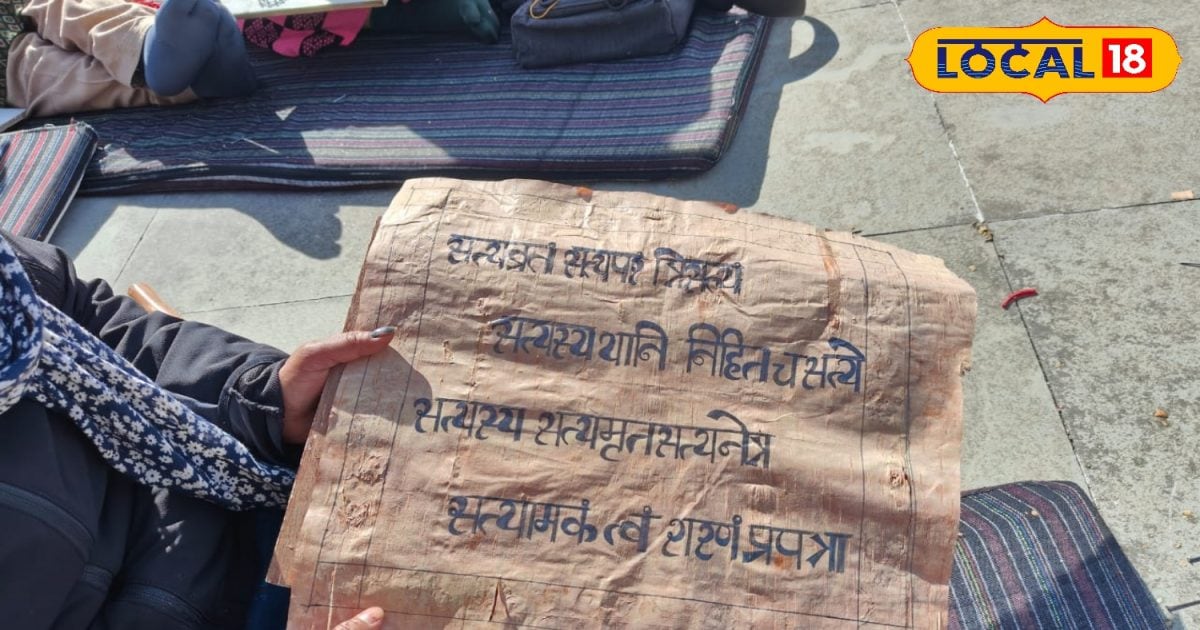 LOCAL 18
सत्यव्रतं सत्यपरं त्रिसत्य
सत्यस्य यानि निहित च सत्ये
सत्यस्य सत्यमृतसत्यनेत्र
सत्यामकं त्वं शरणं प्रपत्रा